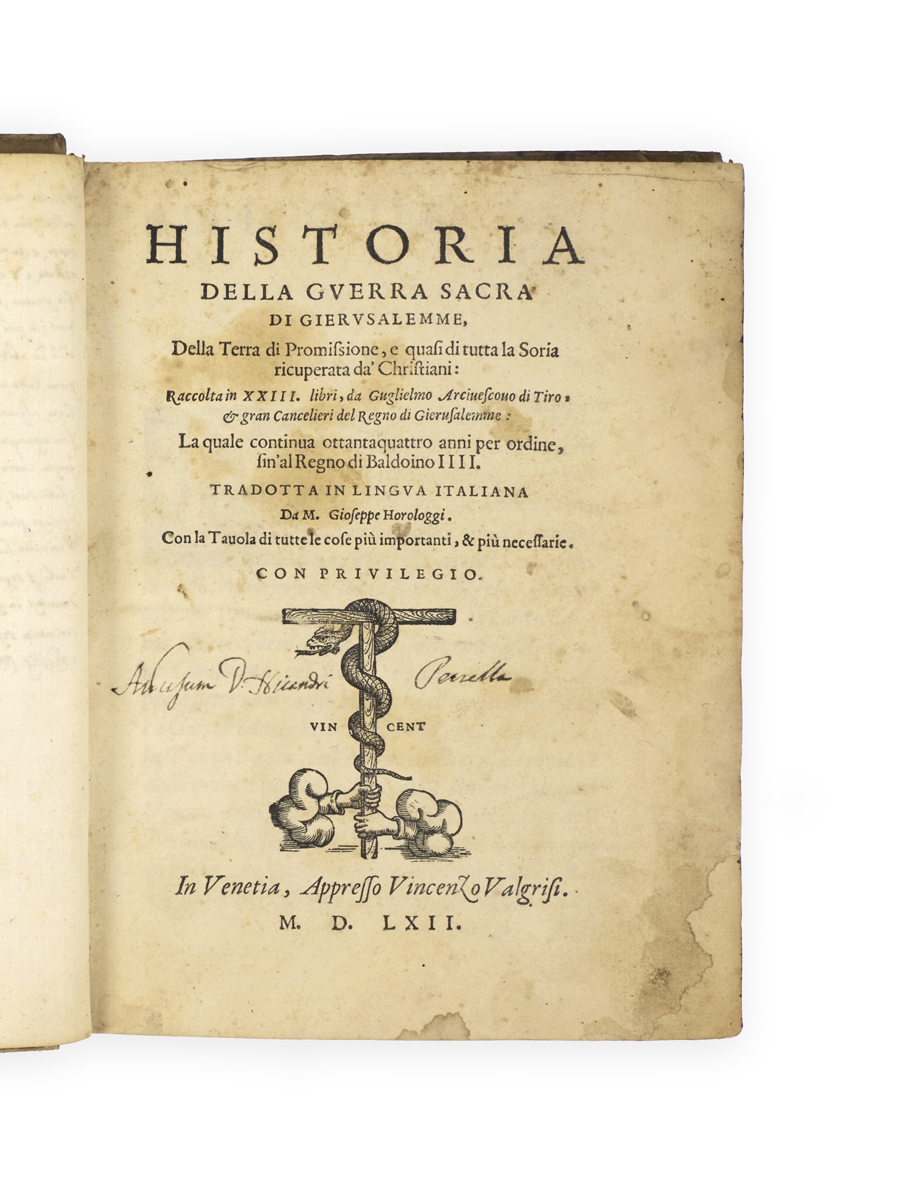 HISTORIA
DELLA GVERRA SACRA
DI GIERVSALEMME,
Della Terra di Promiſsione, e quaſi di tutta la Soria
ricuperata da' Chriſtiani:
Raccolta in XXIII. libri, da Guglielmo Arciueſcouo di Tiro,
& gran Cancelieri del Regno di Gieruſalemme:
La quale continua ottantaquattro anni per ordine,
ſin'al Regno di Baldoino IIII.
TRADOTTA IN LINGVA ITALIANA
Da M. Gioſeppe Horologgi.
Con la Tauola di tutte le coſe più importanti, & più neceſſarie.
CON PRIVILEGIO.
D. Nicandri Perrella
VIN CENT
In Venetia, Appreſſo Vincenzo Valgriſi.
M. D. LXII.